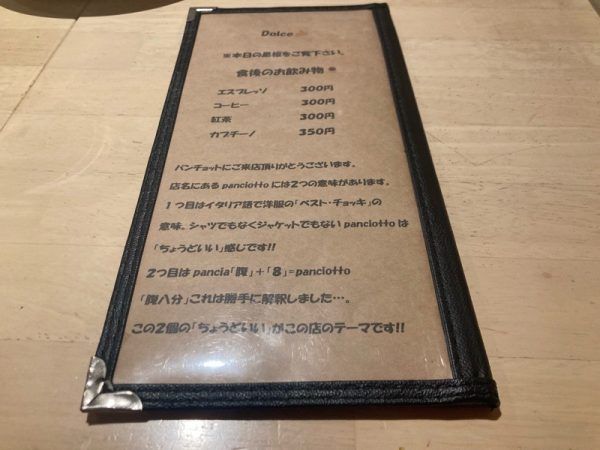 Dolce
※本日の黒板をご覧下さい。
食後のお飲み物
エスプレッソ 300円
コーヒー 300円
紅茶 300円
カプチーノ 350円
パンチョットにご来店頂りがとうございます。
店名にある panciotto には2つの意味があります。
1つ目はイタリア語で洋服の「ベスト・チョッキ」の
意味、シャツでもなくジャケットでもない panciotto は
「ちょうどいい」感じです!!
2つ目は pancia「腹」+「8」=panciotto
「腹八分」これは勝手に解釈しました…。
この2個の「ちょうどいい」がこの店のテーマです!!